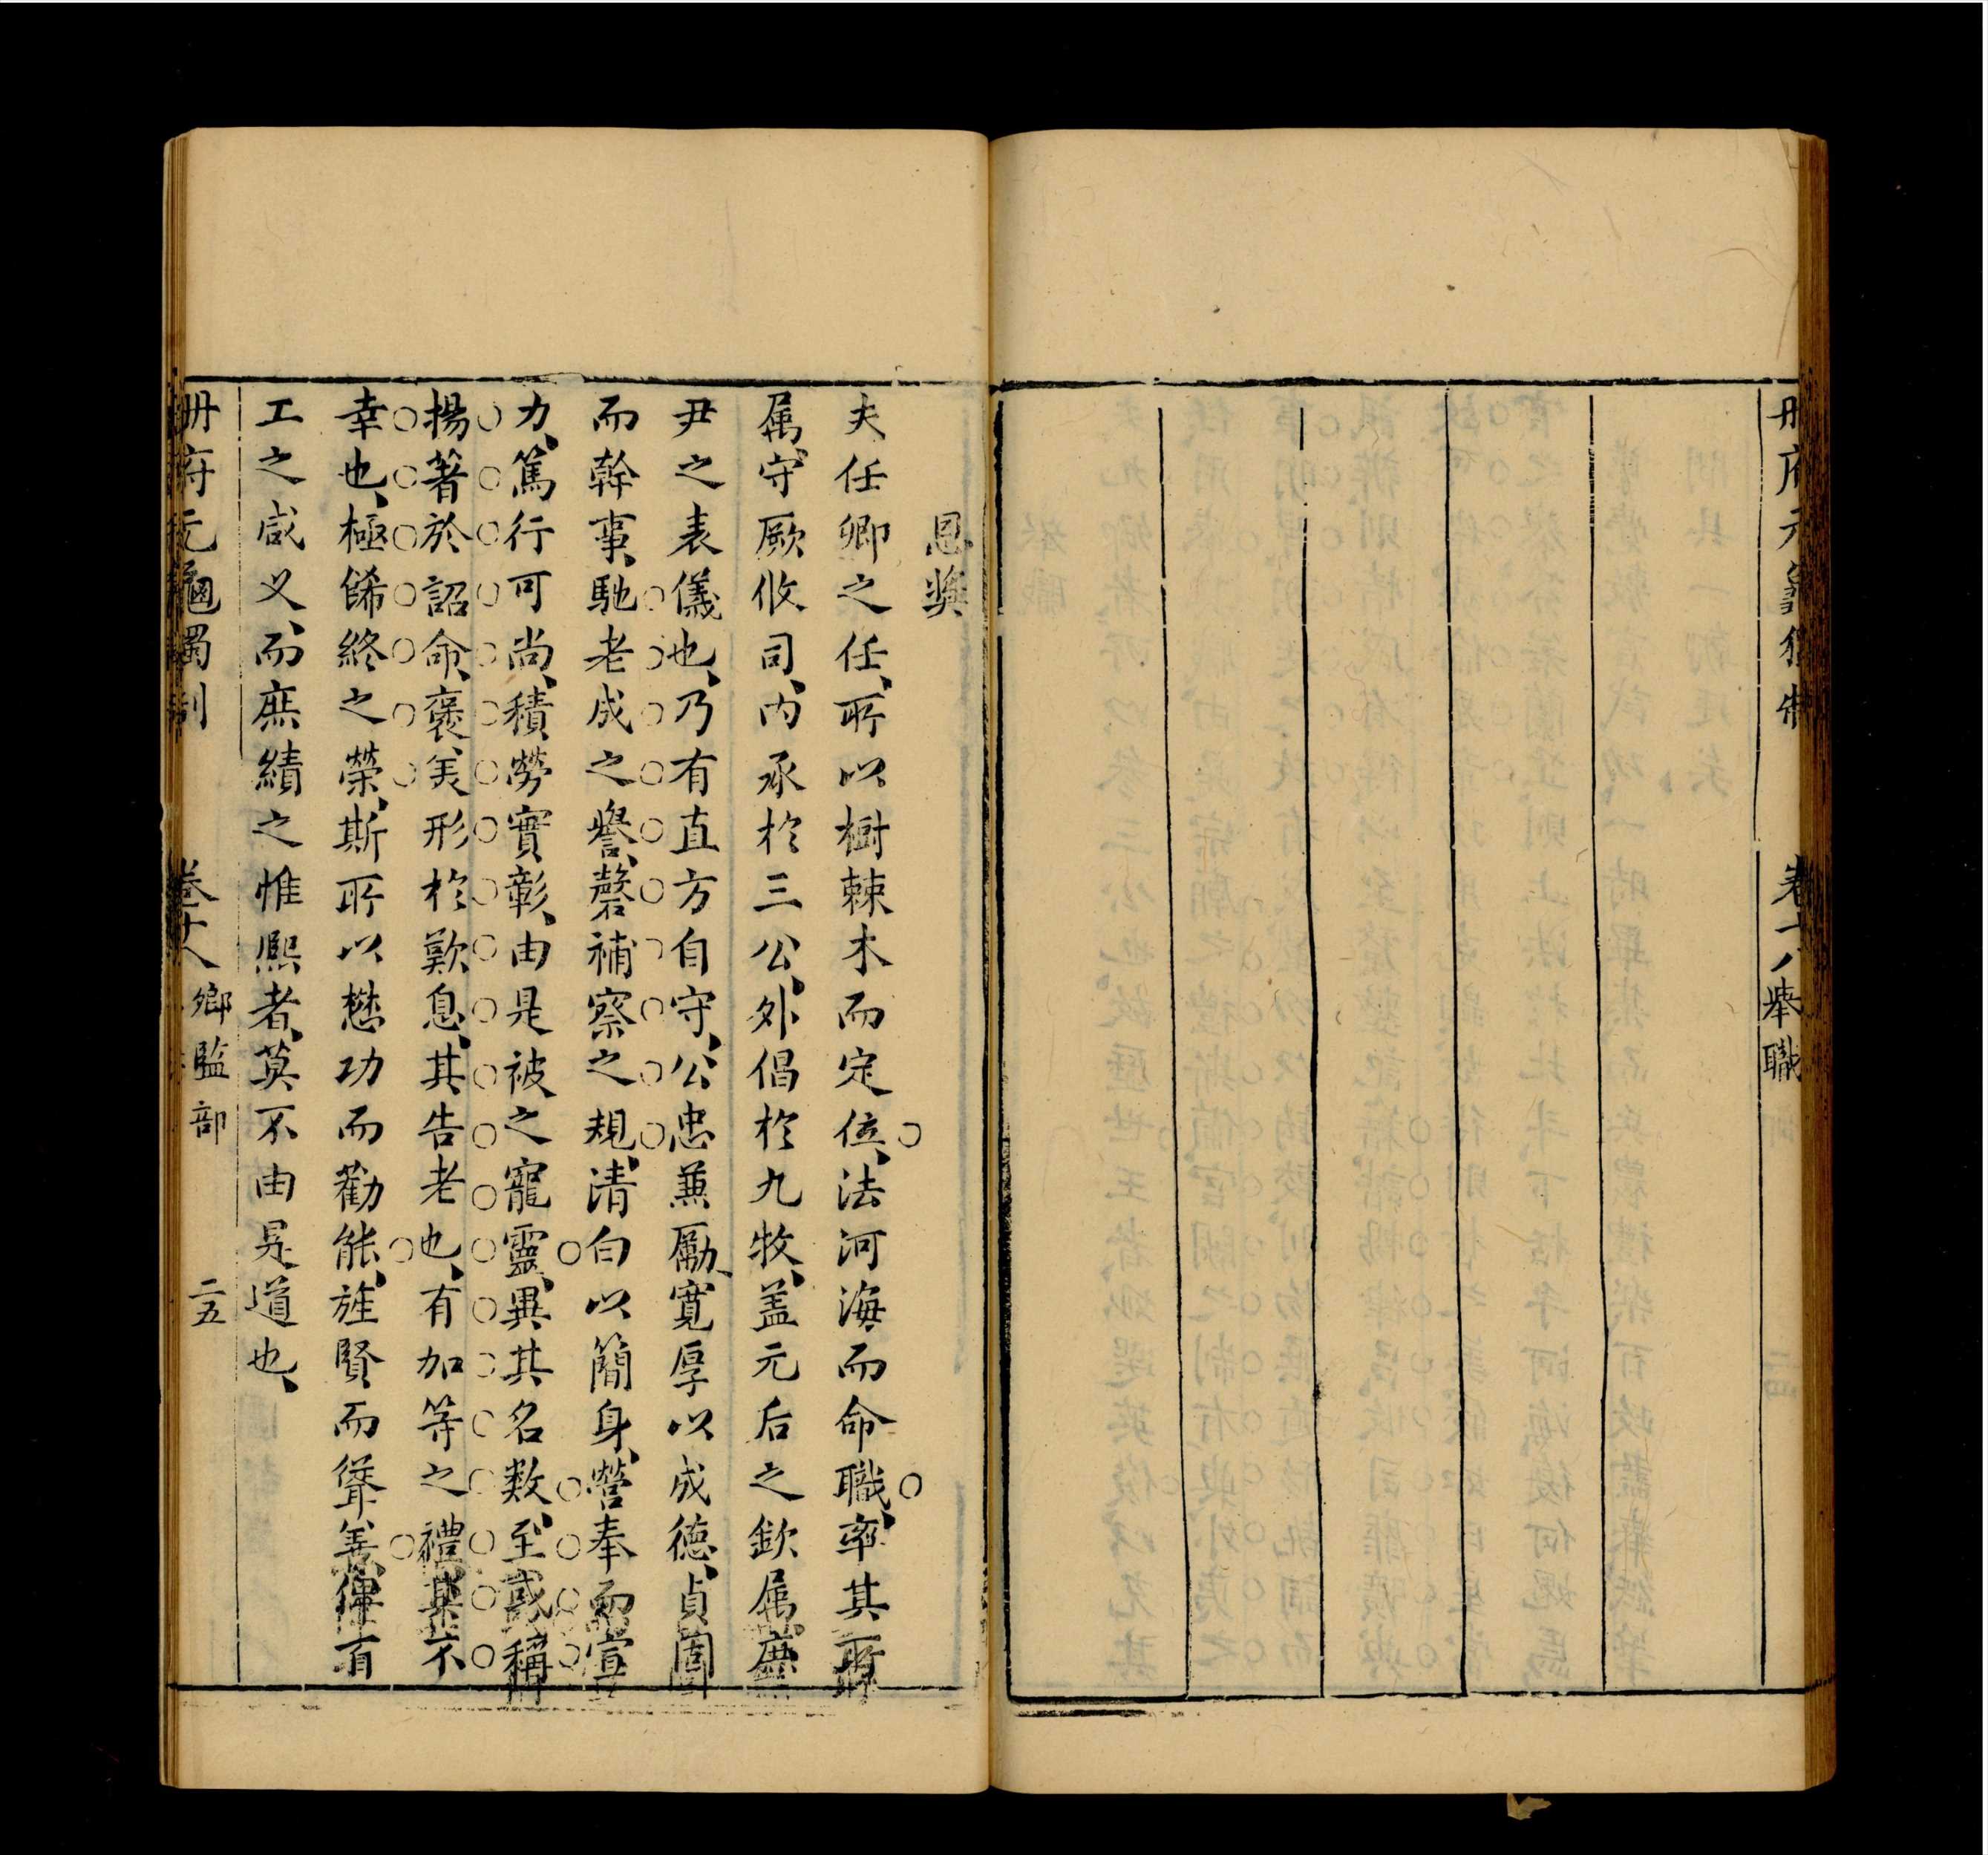 冊府元龜獨制 卷十八 舉職
恩奬
夫任卿之任、所以樹棘木而定位、法河海而命職、率其所
属、守厥攸司、内承於三公、外倡於九牧、盖元后之欽属、庶
尹之表儀也、乃有直方自守、公忠兼勵、寛厚以成德、貞固
而幹事、馳老成之譽、罄補察之規、清白以簡身、營奉而宣
力、篤行可尚、積勞實彰、由是被之寵靈、異其名数、至或稱
揚著於詔命、褒美形於歎息、其告老也、有加等之禮、其不
幸也、極餙終之榮、斯所以懋功而勸能、旌賢而聳善、俾百
工之咸乂、而庶績之惟熈者、莫不由是道也、
冊府元龜獨制 卷十八 鄉監部 二五